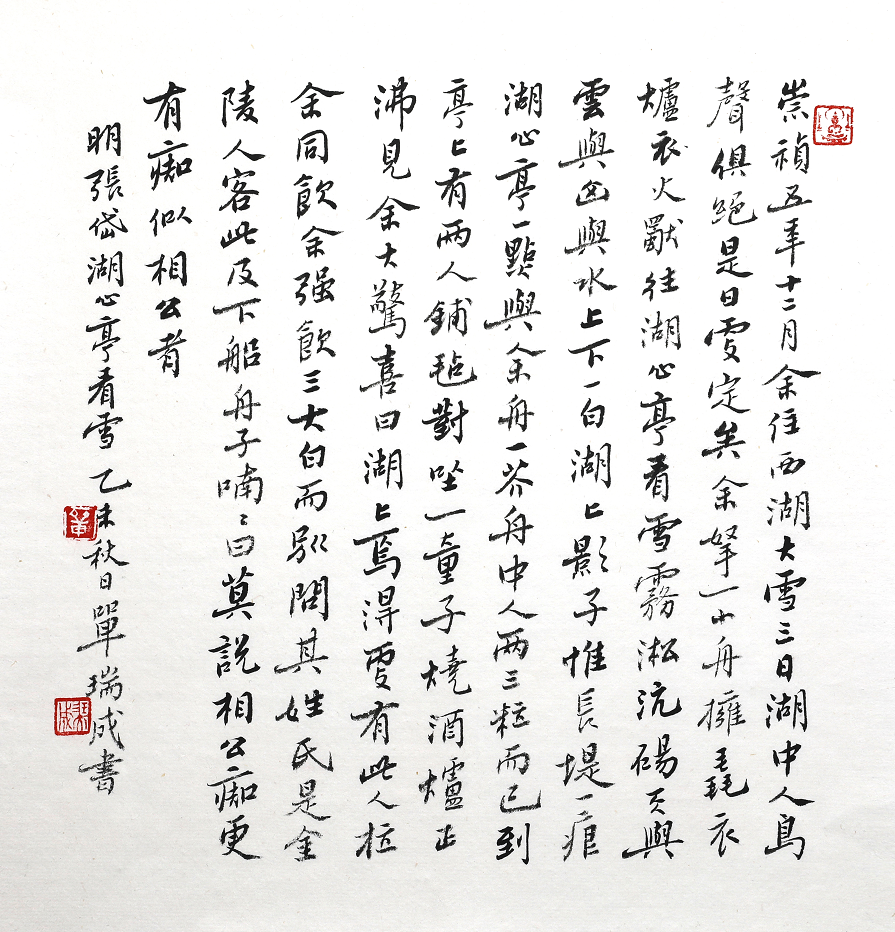 崇禎五年十二月余住西湖大雪三日湖中人鳥
聲俱絕是日更定矣余拏一小舟擁毳衣
爐衣火獸往湖心亭看雪霧淞沆碭天與
雲與山與水上下一白湖上影子惟長堤一痕
湖心亭一點與余舟一芥舟中人兩三粒而已到
亭上有兩人鋪氈對坐一童子燒酒爐正
沸見余大驚喜曰湖上焉得更有此人拉
余同飲余强飲三大白而別問其姓氏是金
陵人客此及下船舟子喃〻曰莫說相公痴更
有痴似相公者
明張岱湖心亭看雪 乙未秋日單瑞成書